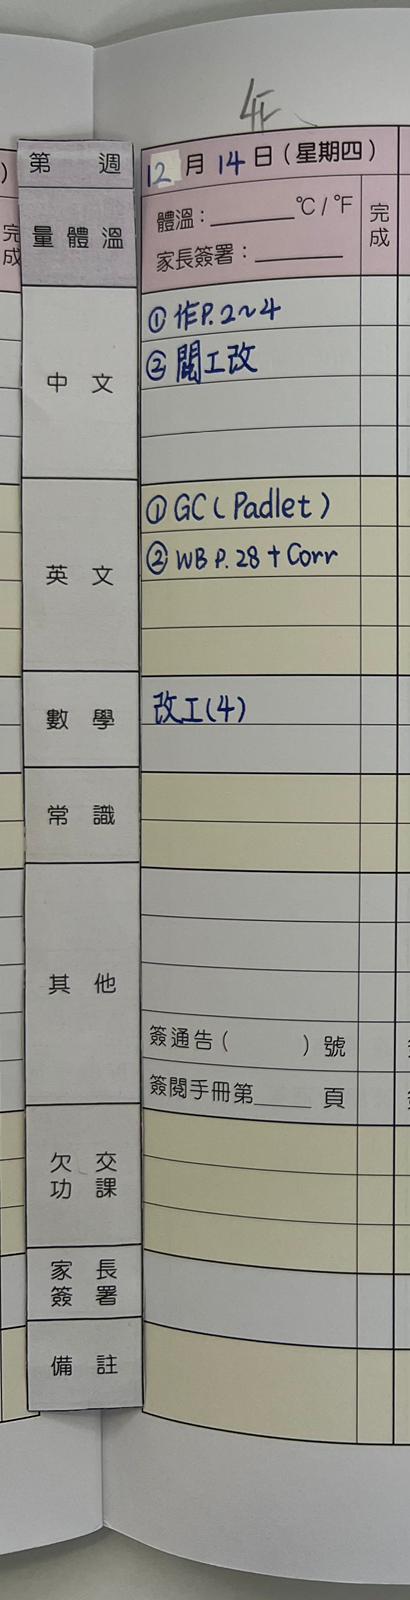 第　週
12月14日(星期四)
量體溫
體溫：______°C/°F
完成
家長簽署：______
中文
①作P.2~4
②閱工改
英文
①GC(Padlet)
②WB P.28+Corr
數學
改工(4)
常識
其他
簽通告(　　)號
簽閱手冊第____頁
欠交功課
家長簽署
備註